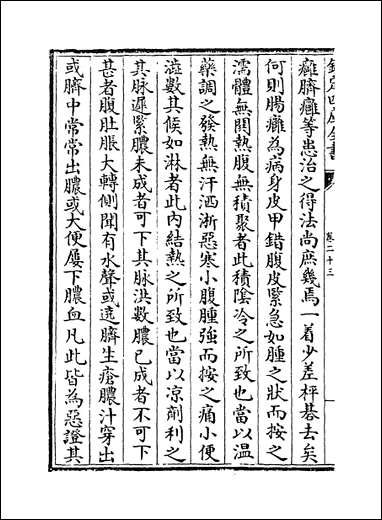 欽定四庫全書
卷二十三
癰臍癰等患治之得法尚庶幾焉一着少差枰碁去矣
何則腸癰為病身皮甲錯腹皮緊急如腫之狀而按之
濡體無關熱腹無積聚者此積陰冷之所致也當以温
藥調之發熱無汗洒淅惡寒小腹腫強而按之痛小便
澁數其候如淋者此内結熱之所致也當以凉劑利之
其脉遲緊膿未成者可下其脉洪數膿已成者不可下
甚者腹肚脹大轉側聞有水聲或遶臍生瘡膿汁穿出
或臍中常常出膿或大便屢下膿血凡此皆為惡證其